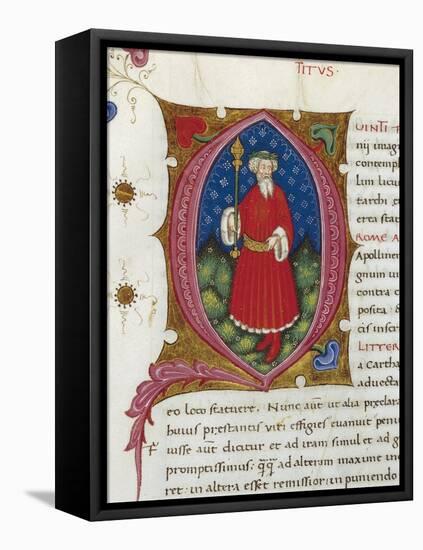 TITVS·
UINTI T
nij imag
contempl
lum lucu
tarchi et
erea stat
ROME A
Apolliner
gnum ut
contra c
posita: d
cis inscri
LITTER
a Cartha
aduecta
eo loco statuere. Nunc aũt ut alia præclara
huius præstantis uiri effigies euanuit peni
uisse aũt dicatur et ad iram simul et ad g
promptissimus: q̃q̃ ad alteram maxime in
ret: in altera esset remissior: in puniendo